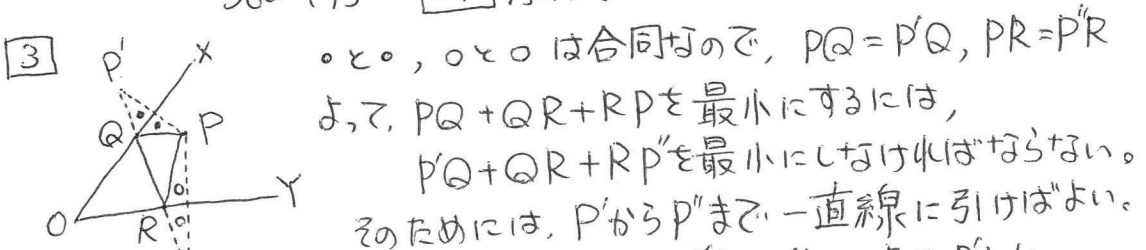 3
・と・, ○と○ は合同なので, PQ = P'Q, PR = P"R
よって, PQ + QR + RPを最小にするには,
P'Q + QR + RP"を最小にしなければならない。
そのためには, P'からP"まで一直線に引けばよい。
P'
X
Q
P
O
R
Y